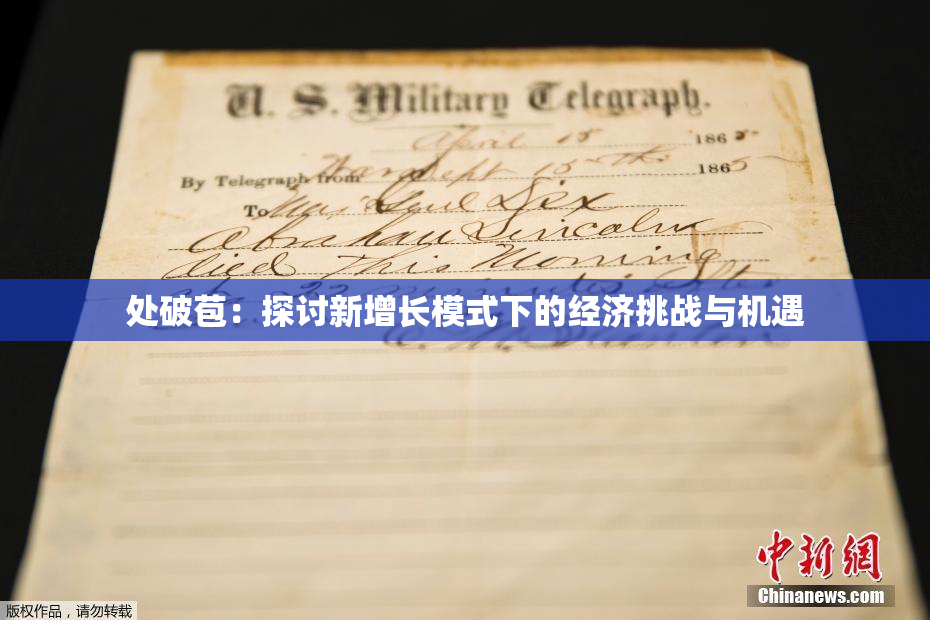 U. S. Military Telegraph.
April 15 1865
By Telegraph from War Dept 15th 1865
To Maj Genl Dix
Abraham Lincoln
died This Morning
at 22 minutes after
处破苞：探讨新增长模式下的经济挑战与机遇
E. M. Stanton
中新網
Chinanews.com
版权作品，请勿转载